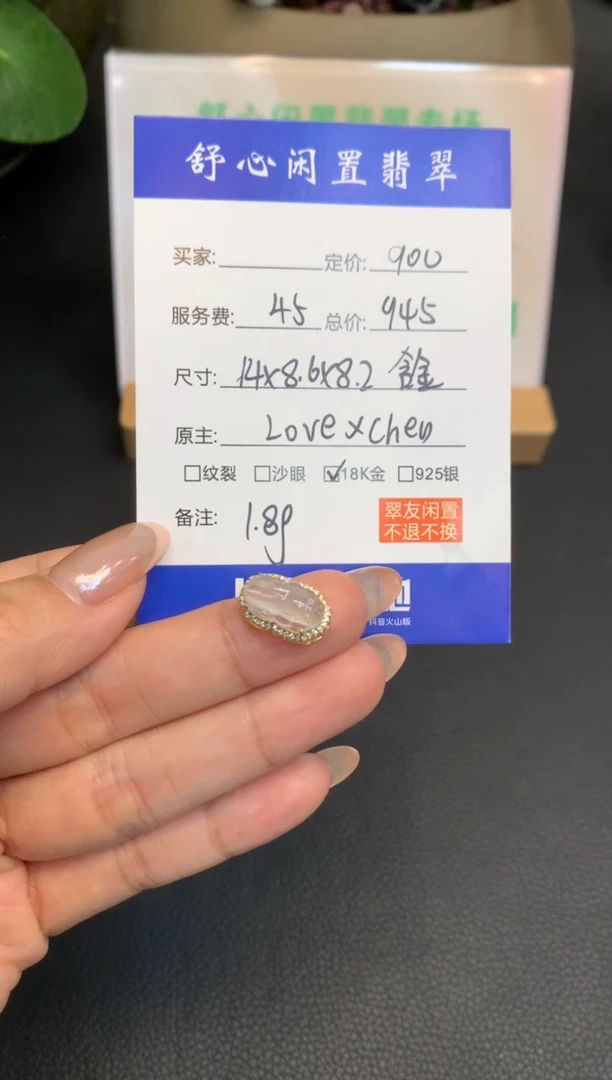 舒心闲置翡翠
买家: 定价: 900
服务费: 45 总价: 945
尺寸: 14x8.6x8.2 含金
原主: Love x chen
□纹裂 □沙眼 ☑18K金 □925银
备注: 1.8g
翠友闲置
不退不换
抖音火山版